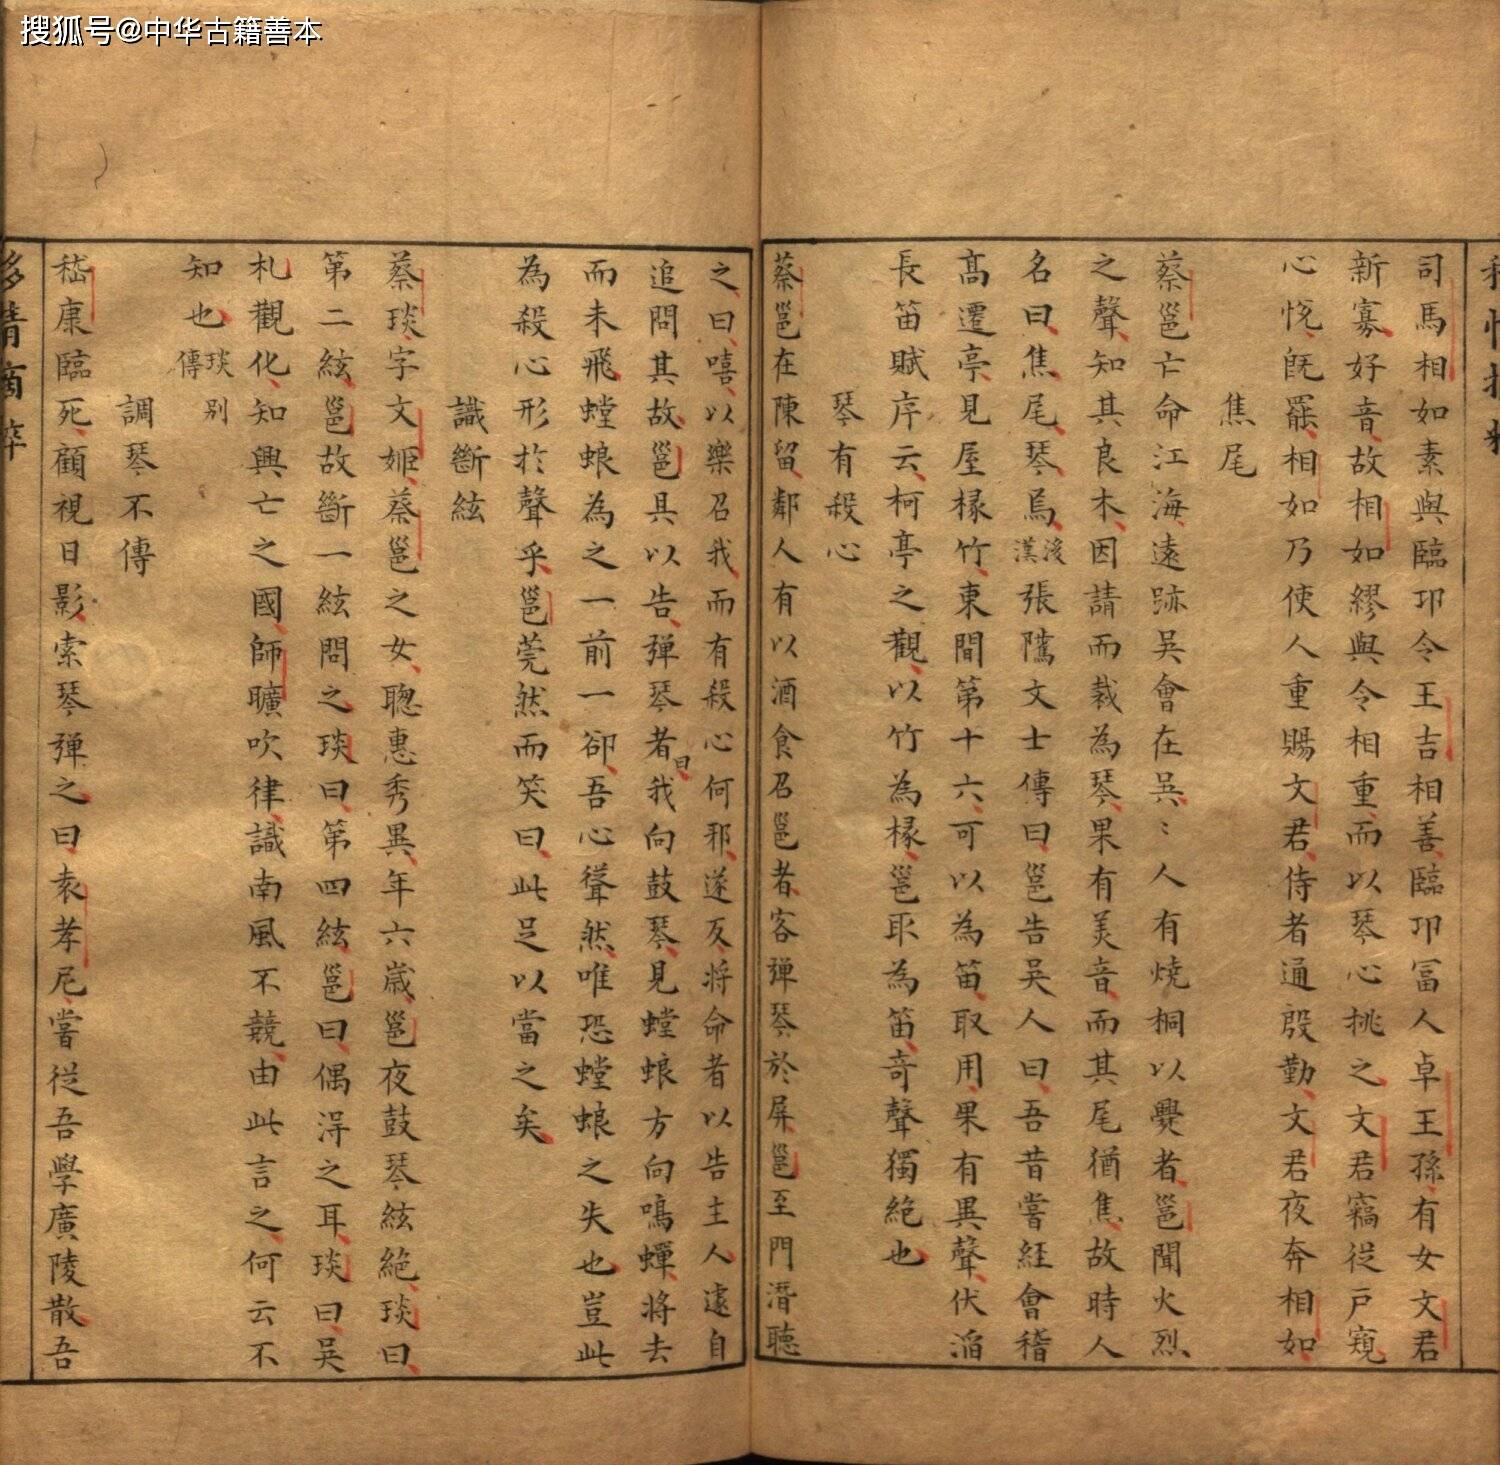 搜狐号@中华古籍善本
司馬相如素與臨卭令王吉相善臨卭冨人卓王孫有女文君
新寡好音故相如繆與令相重而以琴心挑之文君竊從戸窺
心恱旣罷相如乃使人重賜文君侍者通殷勤文君夜奔相如
焦尾
蔡邕亡命江海遠跡吳會在吳〻人有燒桐以爨者邕聞火烈
之聲知其良木因請而裁為琴果有美音而其尾猶焦故時人
名曰焦尾琴焉後漢張隲文士傳曰邕告吳人曰吾昔嘗經會稽
髙遷亭見屋椽竹東間第十六可以為笛取用果有異聲伏滔
長笛賦序云柯亭之觀以竹為椽邕取為笛竒聲獨絶也
琴有殺心
蔡邕在陳留鄰人有以酒食召邕者客弹琴於屏邕至門潛聽
之曰嘻以樂召我而有殺心何邪遂反将命者以告主人遽自
追問其故邕具以告弹琴者曰我向鼓琴見螳蜋方向鳴蟬将去
而未飛螳蜋為之一前一郤吾心聳然唯恐螳蜋之失也豈此
為殺心形於聲乎邕莞然而笑曰此足以當之矣
識斷絃
蔡琰字文姬蔡邕之女聰惠秀異年六歳邕夜鼓琴絃絶琰曰
第二絃邕故斷一絃問之琰曰第四絃邕曰偶淂之耳琰曰吳
札觀化知興亡之國師曠吹律識南風不競由此言之何云不
知也琰别傳
調琴不傳
嵇康臨死顧視日影索琴弹之曰袁孝尼嘗從吾學廣陵散吾